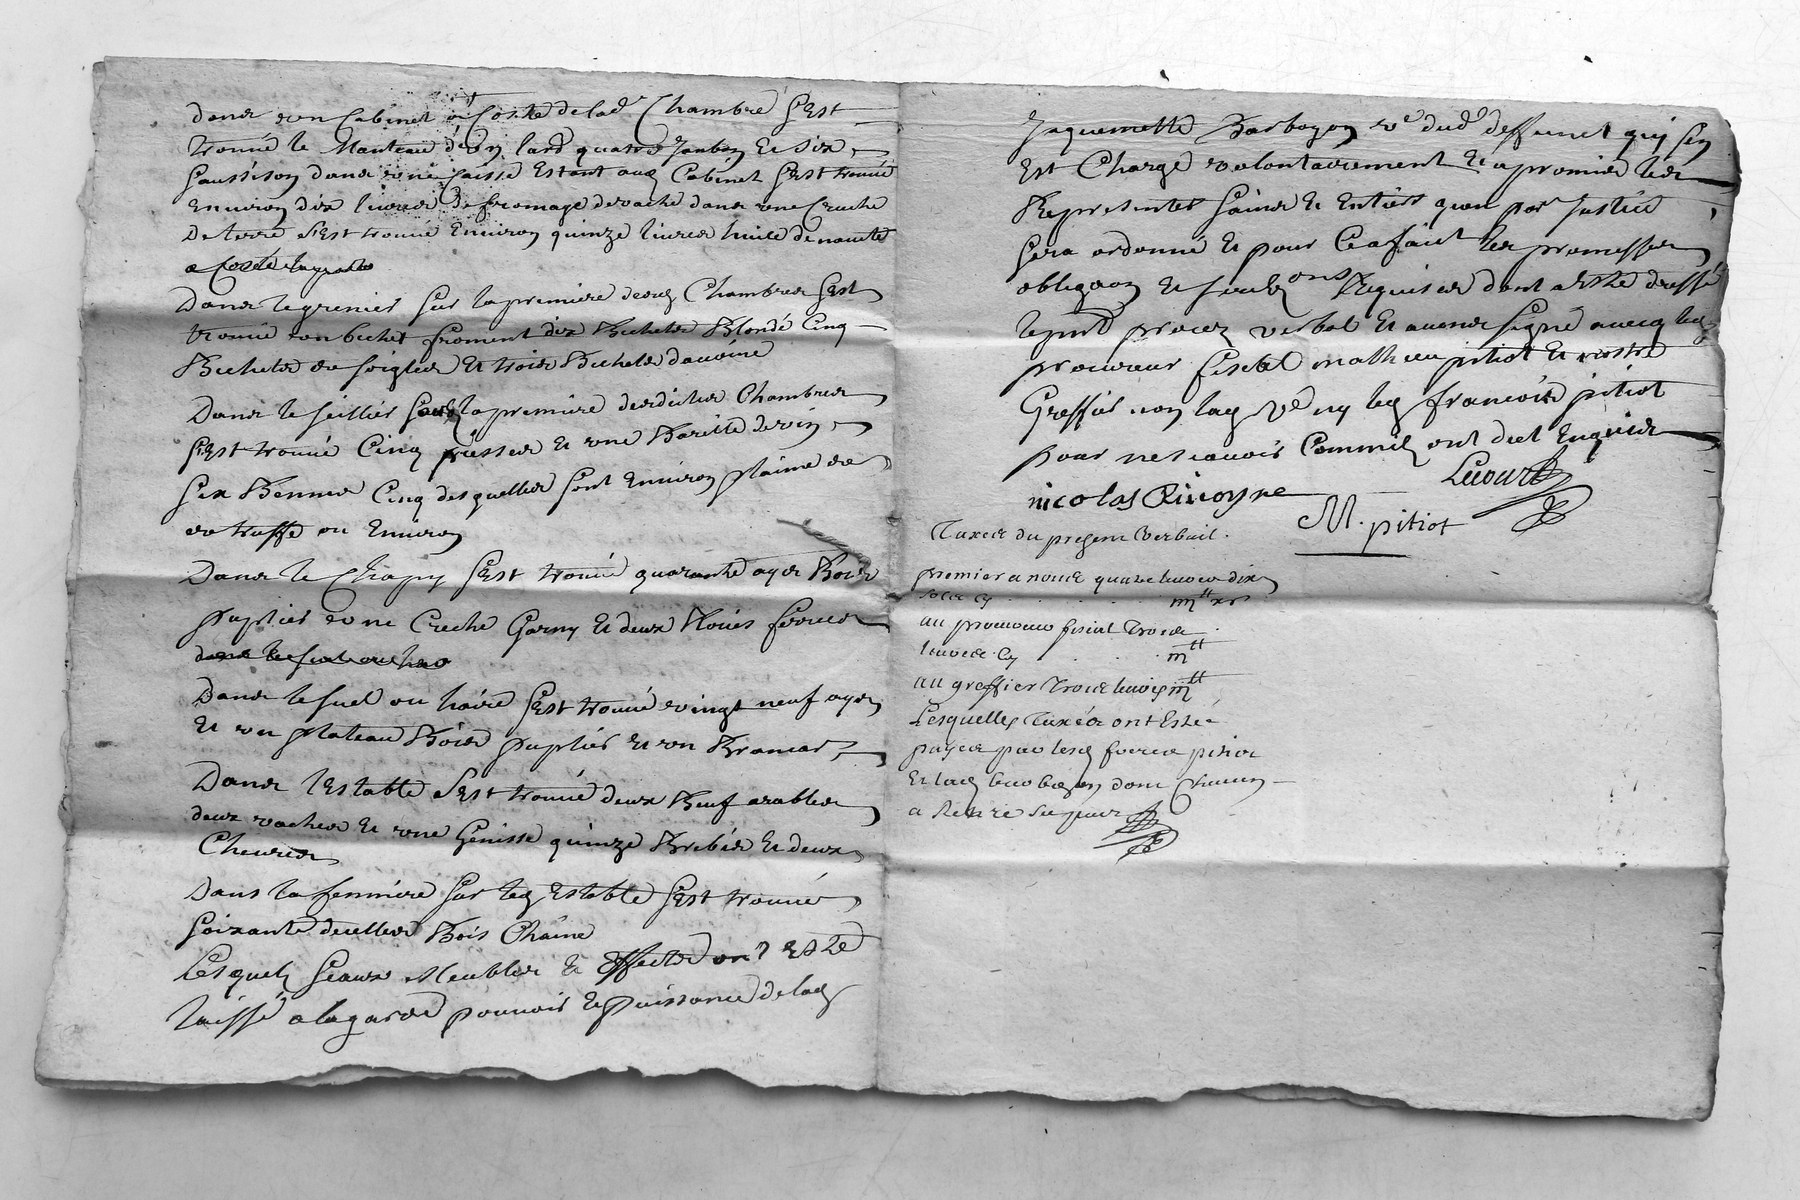 Dans un Cabinet a Costé de lad.e Chambre s'Est
trouvé le Manteau d'un lard quatre Jambon Et six
saussison dans une caisse Estant aud Cabinet s'Est trouvé
Environ dix livres de fromage de vache dans une Cruche
De terre s'Est trouvé Environ quinze livres huile de navette
Dans le grenier sur la premiere desd Chambres s'Est
trouvé un bichet froment dix Bichets Blondé Cinq
Bichets de seigles Et trois Bichets d'avoine
Dans le seillier sous la premiere desdictes Chambres
s'Est trouvé Cinq piesses Et une Barille de vin
six Bennes Cinq desquelles sont Environ plaine de
de truffe ou Environ
Dans le Chapy s'Est trouvé quarante ayes Bois
puplier une Creche Garny Et deux Roües ferrées
Dans le suel ou haire s'Est trouvé vingt neuf ayes
Et un plateau Bois puplier Et un Brancar
Dans l'Estable s'Est trouvé deux Beuf arables
deux vaches Et une Genisse quinze Brebis Et deux
Chevres
Dans la fenniere sur led Estable s'Est trouvé
soixante douelles Bois Chaine
Lesquels seaux Meubles Et Effectes ont Esté
laissé a la garde pouvoir Et puissance de lad
Jaquemette Barboyon v.e dud.t deffunct qui s'en
Est Chargé volontairement Et a promis les
Representer sains Et Entiers quan par Justice
sera ordonné Et pour Ce a faict les promesses
obligaon Et Requises dont a Esté dressé
le pnt procez verbal Et avons signé avecq led
procureur fiscal mathieu pitiot Et nostre
Greffier non lad v.e ny led francois pitiot
pour ne scavoir Comme ils ont dict Enquis
nicolas
M. pitiot
Taxes du present verbail.
premier a nous quatre livres dix
sols Cy
au procureur fiscal Trois
livres Cy
au greffier Trois livres
Lesquelles Taxes ont Esté
payes par lesd freres pitiot
Et lad barboyon dont Chacun